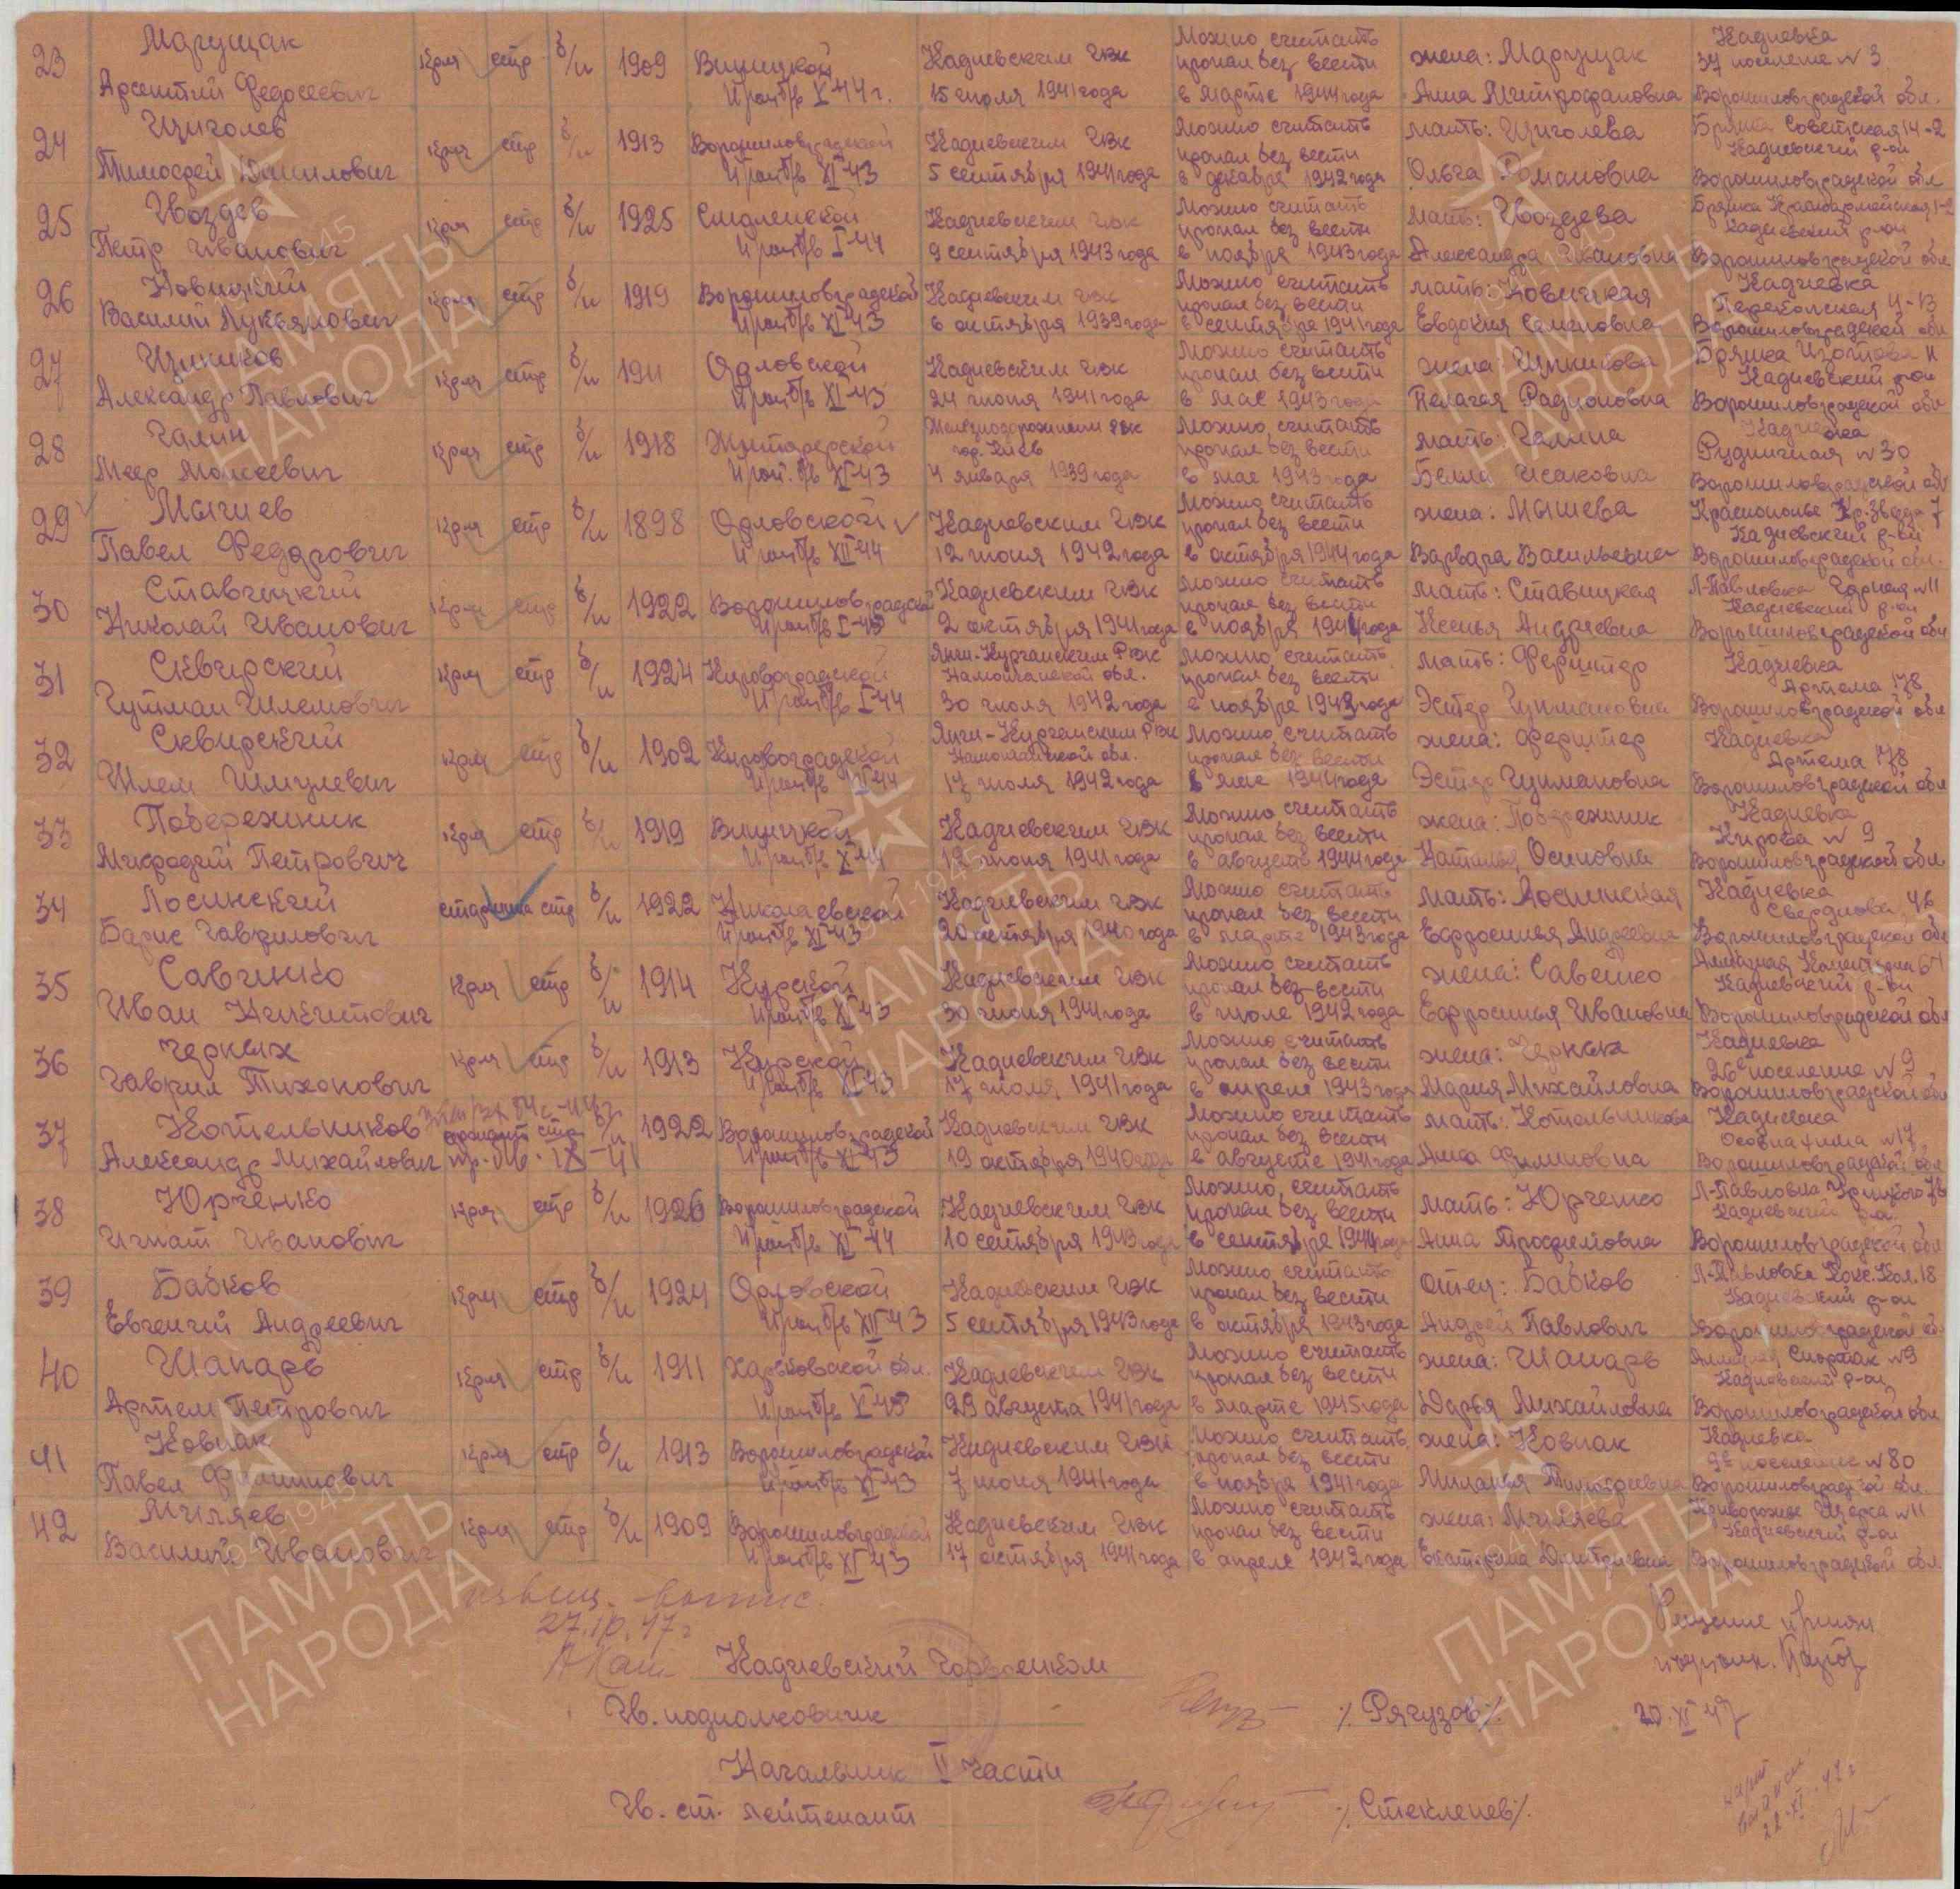 23 Марущак кр-ц стр б/п 1909 Винницкой Кадиевским ГВК Можно считать жена: Марущак Кадиевка
Арсентий Федосеевич Проп б/в X-44 г. 15 июля 1941 года пропал без вести в марте 1944 года Анна Митрофановна 34 поселение № 3 Ворошиловградской обл.
24 Щиголев кр-ц стр б/п 1913 Ворошиловградской Кадиевским ГВК Можно считать мать: Щиголева Брянка Советская 14-2
Тимофей Данилович Проп б/в XI-43 5 сентября 1941 года пропал без вести в декабре 1942 года Ольга Романовна Кадиевский р-он Ворошиловградской обл
25 Гвоздев кр-ц стр б/п 1925 Смоленской Кадиевским ГВК Можно считать мать: Гвоздева Брянка Красноармейская
Петр Иванович Проп б/в I-44 9 сентября 1943 года пропал без вести в ноябре 1943 года Александра Ивановна Кадиевский р-он Ворошиловградской обл
26 Новицкий кр-ц стр б/п 1919 Ворошиловградской Кадиевским ГВК Можно считать мать: Новицкая Кадиевка
Василий Лукьянович Проп б/в XI-43 6 октября 1939 года пропал без вести в сентябре 1941 года Евдокия Семеновна Перекопская 4-13 Ворошиловградской обл
27 кр-ц стр б/п 1911 Орловской Кадиевским ГВК Можно считать жена: Брянка Изотова 11
Александр Павлович Проп б/в XI-43 24 июня 1941 года пропал без вести в мае 1943 года Пелагея Радионовна Кадиевский р-он Ворошиловградской обл
28 Галин кр-ц стр б/п 1918 Житомирской Железнодорожным РВК Можно считать мать: Галина Кадиевка
Меер Моисеевич Проп. б/в XI-43 гор. Киев 4 января 1939 года пропал без вести в мае 1943 года Белла Исаковна Рудничная № 30 Ворошиловградской обл
29 Мышев кр-ц стр б/п 1898 Орловской Кадиевским ГВК Можно считать жена: Мышева Краснополье Кр. Звезда 7
Павел Федорович Проп б/в XII-44 12 июня 1942 года пропал без вести в октябре 1944 года Варвара Васильевна Кадиевский р-он Ворошиловградской обл.
30 Ставицкий кр-ц стр б/п 1922 Ворошиловградской Кадиевским ГВК Можно считать мать: Ставицкая Л-Павловка Горная № 11
Николай Иванович Проп б/в I-45 2 октября 1941 года пропал без вести в ноябре 1944 года Ксенья Андреевна Кадиевский р-он Ворошиловградской обл
31 Сквирский кр-ц стр б/п 1924 Кировоградской Янги-Курганским РВК Можно считать мать: Ферштер Кадиевка
Гутман Шлемович Проп б/в I-44 Наманганской обл. 30 июля 1942 года пропал без вести в ноябре 1943 года Эстер Гутмановна Артема 178 Ворошиловградской обл
32 Сквирский кр-ц стр б/п 1902 Кировоградской Янги-Курганским РВК Можно считать жена: Ферштер Кадиевка
Шлем Шмулевич Проп б/в 44 Наманганской обл. 17 июля 1942 года пропал без вести в мае 1944 года Эстер Гутмановна Артема 178 Ворошиловградской обл
33 Побережник кр-ц стр б/п 1919 Винницкой Кадиевским ГВК Можно считать жена: Побережник Кадиевка
Мифодий Петрович Проп б/в X-44 12 июня 1941 года пропал без вести в августе 1944 года Наталья Осиповна Кирова № 9 Ворошиловградской обл
34 Лосинский старшина стр б/п 1922 Николаевской Кадиевским ГВК Можно считать мать: Лосинская Кадиевка
Борис Гаврилович Проп б/в XI-43 20 октября 1940 года пропал без вести в марте 1943 года Ефросинья Андреевна Свердлова 46 Ворошиловградской обл
35 Савченко кр-ц стр б/п 1914 Курской Кадиевским ГВК Можно считать жена: Савенко Алмазная
Иван Никитович Проп б/в XI-43 30 июня 1941 года пропал без вести в июле 1942 года Ефросинья Ивановна Кадиевский р-он Ворошиловградской обл
36 Черных кр-ц стр б/п 1913 Курской Кадиевским ГВК Можно считать жена: Черных Кадиевка
Гаврил Тихонович Проп б/в XI-43 17 июля 1941 года пропал без вести в апреле 1943 года Мария Михайловна 26е поселение № 9 Ворошиловградской обл
37 Котельников стр б/п 1922 Ворошиловградской Кадиевским ГВК Можно считать мать: Котельникова Кадиевка
Александр Михайлович Проп б/в XI-43 19 октября 1940 года пропал без вести в августе 1941 года Анна Филиповна Осоавиахима № 17 Ворошиловградской обл
38 Юрченко кр-ц стр б/п 1926 Ворошиловградской Кадиевским ГВК Можно считать мать: Юрченко Л-Павловка
Игнат Иванович Проп б/в XI-44 10 сентября 1943 года пропал без вести в сентябре 1944 года Анна Трофимовна Кадиевский р-он Ворошиловградской обл
39 Бабков кр-ц стр б/п 1924 Орловской Кадиевским ГВК Можно считать отец: Бабков Л-Павловка Кокс. Кол. 18
Евгений Андреевич Проп б/в XII-43 5 сентября 1943 года пропал без вести в октябре 1943 года Андрей Павлович Кадиевский р-он Ворошиловградской обл
40 Шапарь кр-ц стр б/п 1911 Харьковской обл. Кадиевским ГВК Можно считать жена: Шапарь Алмазная Спартак № 9
Артем Петрович Проп б/в X-45 29 августа 1941 года пропал без вести в марте 1945 года Дарья Михайловна Кадиевский р-он Ворошиловградской обл
41 Ковпак кр-ц стр б/п 1913 Ворошиловградской Кадиевским ГВК Можно считать жена: Ковпак Кадиевка
Павел Филиппович Проп б/в XI-43 7 июня 1941 года пропал без вести в ноябре 1941 года Миланья Тимофеевна 9е поселение № 80 Ворошиловградской обл
42 Миляев кр-ц стр б/п 1909 Ворошиловградской Кадиевским ГВК Можно считать жена: Миляева Криворожье Щорса № 11
Василий Иванович Проп б/в XI-43 17 октября 1941 года пропал без вести в апреле 1942 года Екатерина Дмитриевна Кадиевский р-он Ворошиловградской обл.
извещ. выпис.
27.10.47 г
Кадиевский Горвоенком
Гв. подполковник /Рягузов/.
20.XI 47
Начальник II части
Гв. ст. лейтенант /Стекленев/.
22.XI.47 г
1941-1945
ПАМЯТЬ
НАРОДА